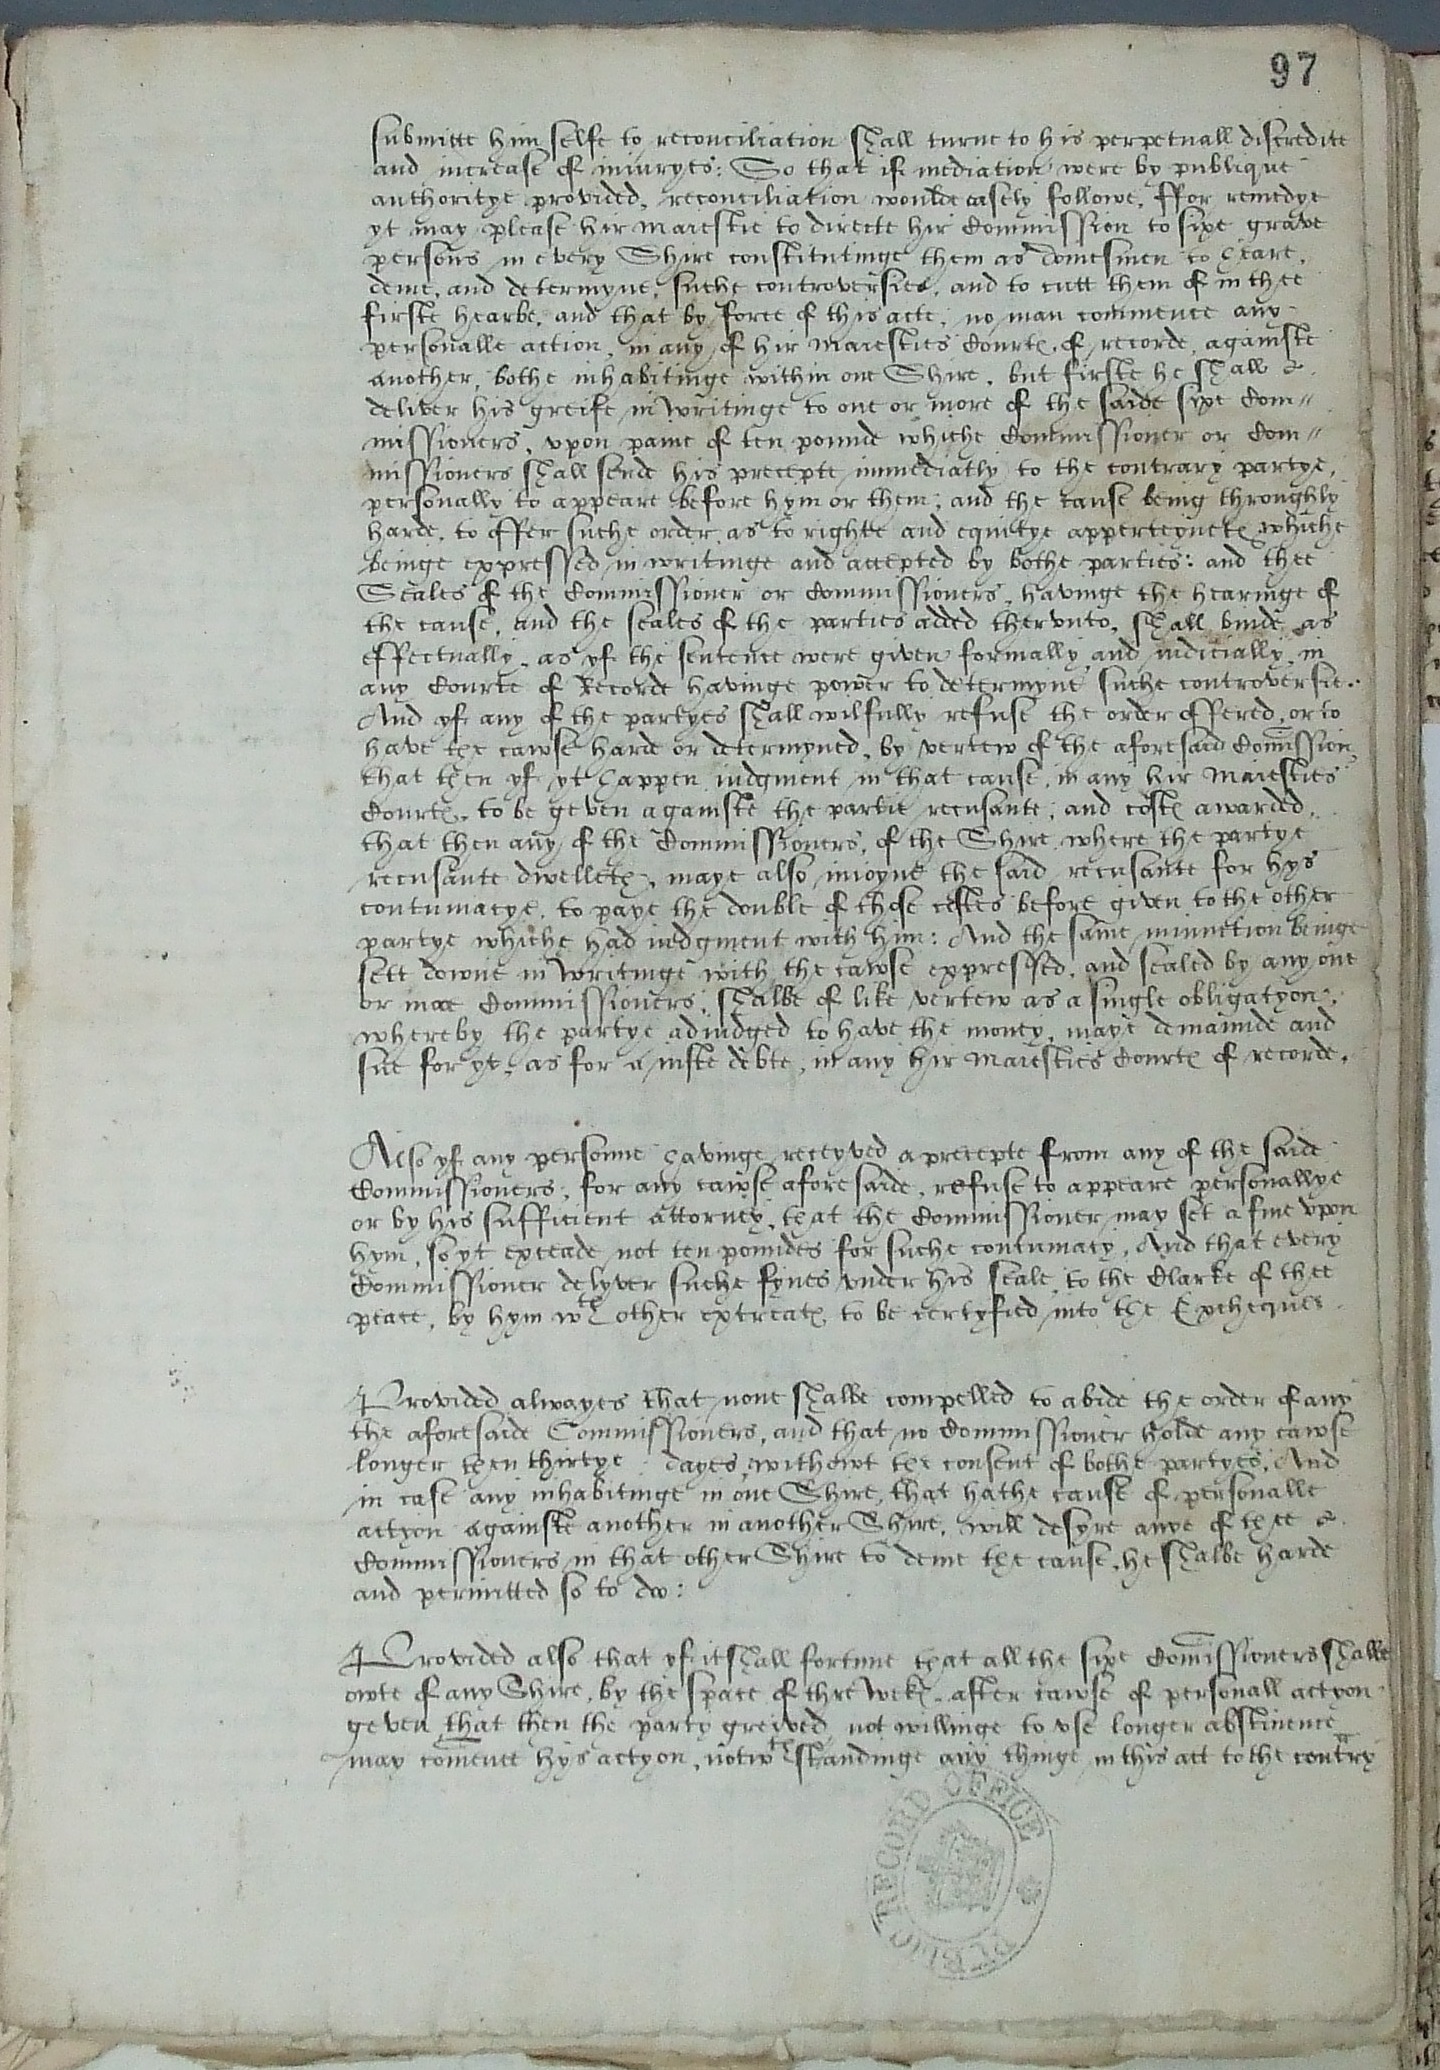 97
submitte him selfe to reconciliation shall turne to his perpetuall discredite
and increase of iniuryes: So that if mediation were by publique
authoritye provided, reconciliation woulde easely followe. ffor remedye
yt may please hir maiestie to directe hir Commission to sixe grave
persons in every Shire constitutinge them as domesmen to heare,
deme, and determyne, suche controversies, and to cutt them of in thee
firste hearbe, and that by force of this acte, no man commence any
personalle action, in any of hir maiesties Courtes of recorde, againste
another, bothe inhabitinge within one Shire, but firste he shall
deliver his greife in writinge to one or more of the saide sixe Com"
missioners, vpon paine of ten pounde whiche Commissioner or Com"
missioners shall sende his precepte immediatly to the contrary partye,
personally to appeare before hym or them; and the cause being throughly
harde, to offer suche order as to righte and equitye apperteyneth, whiche
beinge expressed in writinge and accepted by bothe parties: and thee
Seales of the Commissioner or Commissioners, havinge the hearinge of
the cause, and the seales of the parties added thervnto, shall binde as
effectually, as yf the sentence were given formally and iudicially, in
any Courte of Recorde havinge power to determyne suche controversie.
And yf any of the partyes shall wilfully refuse the order offered, or to
have the cawse harde or determyned, by vertew of the aforesaid Comission,
that then yf yt happen iudgment in that cause, in any hir Maiesties
Courtes, to be geven againste the partie recusante, and costes awarded,
that then any of the Commissioners, of the Shire where the partye
recusante dwelleth, maye also inioyne the said recusante for hys
contumacye, to paye the double of those costes before given to the other
partye whiche had iudgment with him: And the same iniunction beinge
sett downe in writinge with the cawse expressed, and sealed by any one
or moe Commissioners, shalbe of like vertew as a single obligatyon,
whereby the partye adiudged to have the money, maye demaunde and
sue for yt, as for a iuste debte, in any hir Maiesties Courtes of recorde.
Also yf any personne havinge receyved a precepte from any of the saide
Commissioners, for any cawse aforesaide, refuse to appeare personallye
or by his sufficient Attorney, that the Commissioner may set a fine vpon
hym, so yt exceade not ten poundes for suche contumacy. And that every
Commissioner delyver suche fynes vnder his seale, to the Clarke of thee
peace, by hym wth other extreates to be certyfied into the Exchequer.
Provided alwayes that none shalbe compelled to abide the order of any
the aforesaide Commissioners, and that no Commissioner holde any cawse
longer then thirtye dayes, withowt the consent of bothe partyes. And
in case any inhabitinge in one Shire, that hathe cause of personalle
actyon againste another in another Shire, will desyre anye of thee
Commissioners in that other Shire to deme the cause, he shalbe harde
and permitted so to do:
Provided also that yf it shall fortune that all the sixe Comissioners shalbe
owte of any Shire, by the space of thre wekes after cawse of personall actyon
geven that then the party greived not willinge to vse longer abstinence
may comence hys actyon, notwthstandinge any thinge in this act to the contrary
PUBLIC RECORD OFFICE